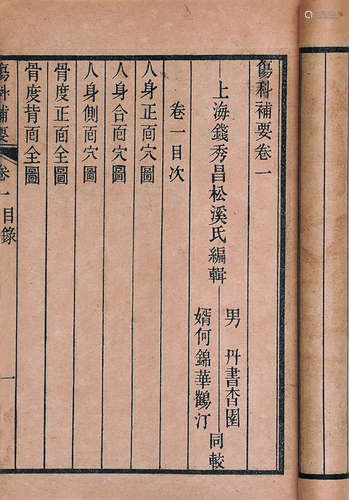 傷科補要卷一
上海錢秀昌松溪氏編輯
男 丹書杏園
壻何錦華鶴汀
同較
卷一目次
人身正面穴圖
人身合面穴圖
人身側面穴圖
骨度正面全圖
骨度背面全圖
傷科補要
卷一目錄
一